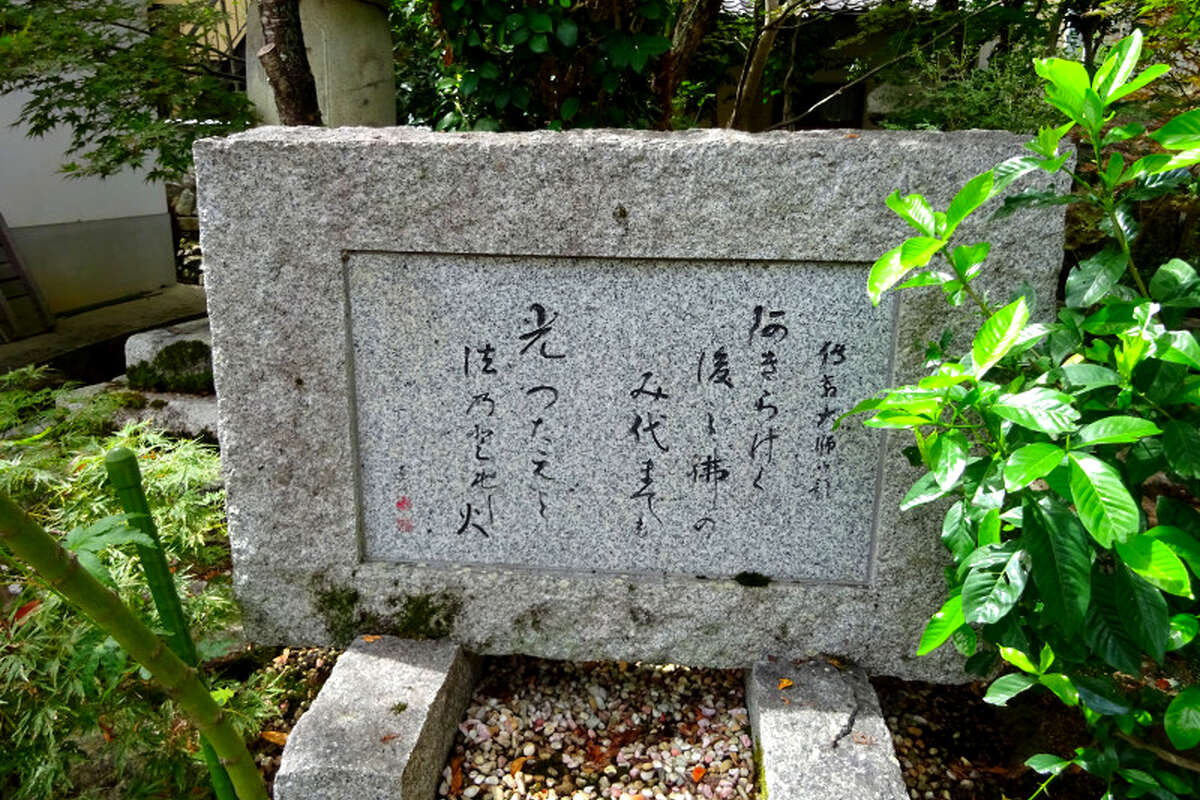 伝教大師御詠
阿きらけく
後の佛の
み代までも
光つたえよ
法乃ともし火